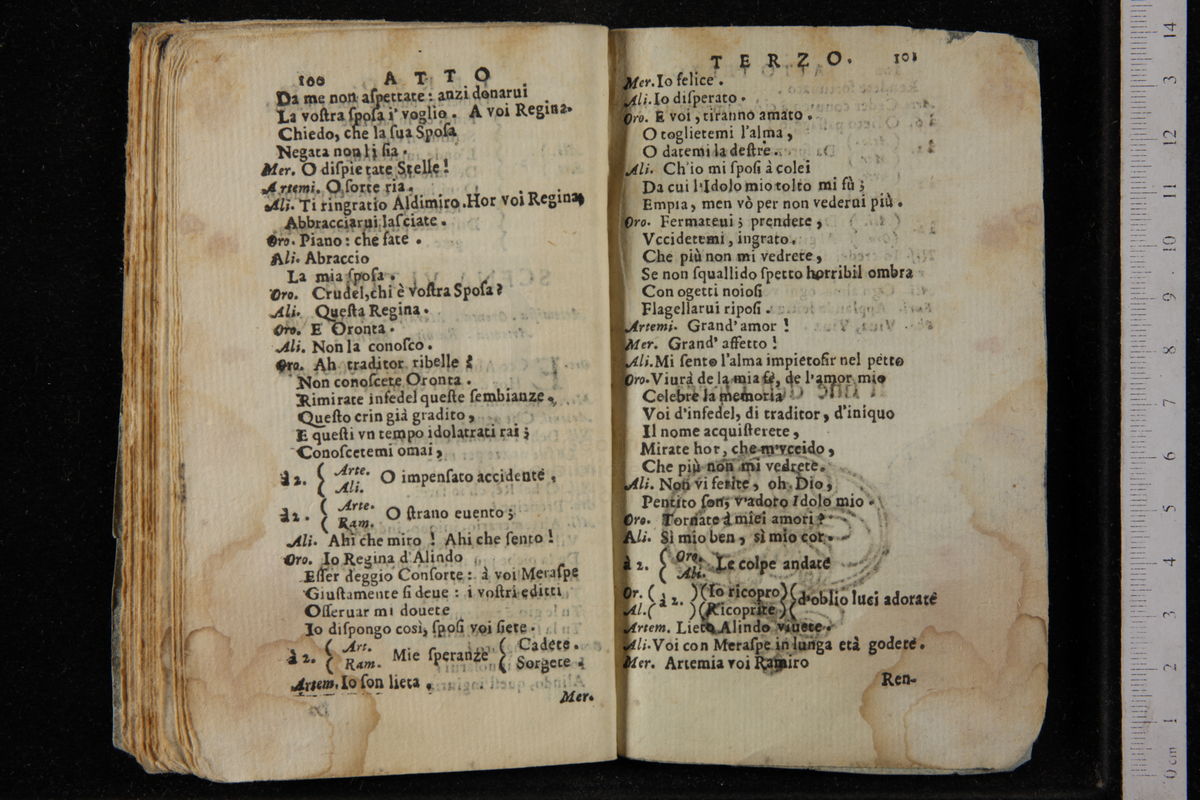 100 ATTO
Da me non aſpettate: anzi donarui
La voſtra ſpoſa i' voglio. A voi Regina.
Chiedo, che la ſua Spoſa
Negata non li ſia.
Mer. O diſpietate Stelle!
Artemi. O ſorte ria.
Ali. Ti ringratio Aldimiro. Hor voi Regina,
Abbracciarui laſciate.
Oro. Piano: che fate.
Ali. Abraccio
La mia ſpoſa.
Oro. Crudel, chi è voſtra Spoſa?
Ali. Queſta Regina.
Oro. E Oronta.
Ali. Non la conoſco.
Oro. Ah traditor ribelle!
Non conoſcete Oronta.
Rimirate infedel queſte ſembianze,
Queſto crin già gradito,
E queſti vn tempo idolatrati rai;
Conoſcetemi omai,
à 2. { Arte. Ali. O impenſato accidente,
à 2. { Arte. Ram. O ſtrano euento;
Ali. Ahi che miro! Ahi che ſento!
Oro. Io Regina d'Alindo
Eſſer deggio Conſorte: à voi Meraſpe
Giuſtamente ſi deue: i voſtri editti
Oſſeruar mi douete
Io diſpongo così, ſpoſi voi ſiete.
à 2. { Art. Ram. Mie ſperanze { Cadete. Sorgete.
Artem. Io ſon lieta.
Mer.
TERZO. 101
Mer. Io felice.
Ali. Io diſperato.
Oro. E voi, tiranno amato.
O toglietemi l'alma,
O datemi la deſtre.
Ali. Ch'io mi ſpoſi à colei
Da cui l'Idolo mio tolto mi fù;
Empia, men vò per non vederui più.
Oro. Fermateui; prendete,
Vccidetemi, ingrato.
Che più non mi vedrete,
Se non ſquallido ſpetto horribil ombra
Con ogetti noioſi
Flagellarui ripoſi.
Artemi. Grand' amor!
Mer. Grand' affetto!
Ali. Mi ſento l'alma impietoſir nel petto
Oro. Viurà de la mia fè, de l'amor mio
Celebre la memoria
Voi d'infedel, di traditor, d'iniquo
Il nome acquiſterete,
Mirate hor, che m'vccido,
Che più non mi vedrete.
Ali. Non vi ferite, oh Dio,
Pentito ſon, v'adoro Idolo mio.
Oro. Tornate à miei amori?
Ali. Sì mio ben, sì mio cor.
à 2. { Oro. Ali. Le colpe andate
Or. ( Al. ( à 2. ) (Io ricopro) (Ricoprite) (d'oblio luci adorate
Artem. Lieto Alindo viuete.
Ali. Voi con Meraſpe in lunga età godete.
Mer. Artemia voi Ramiro
Ren-